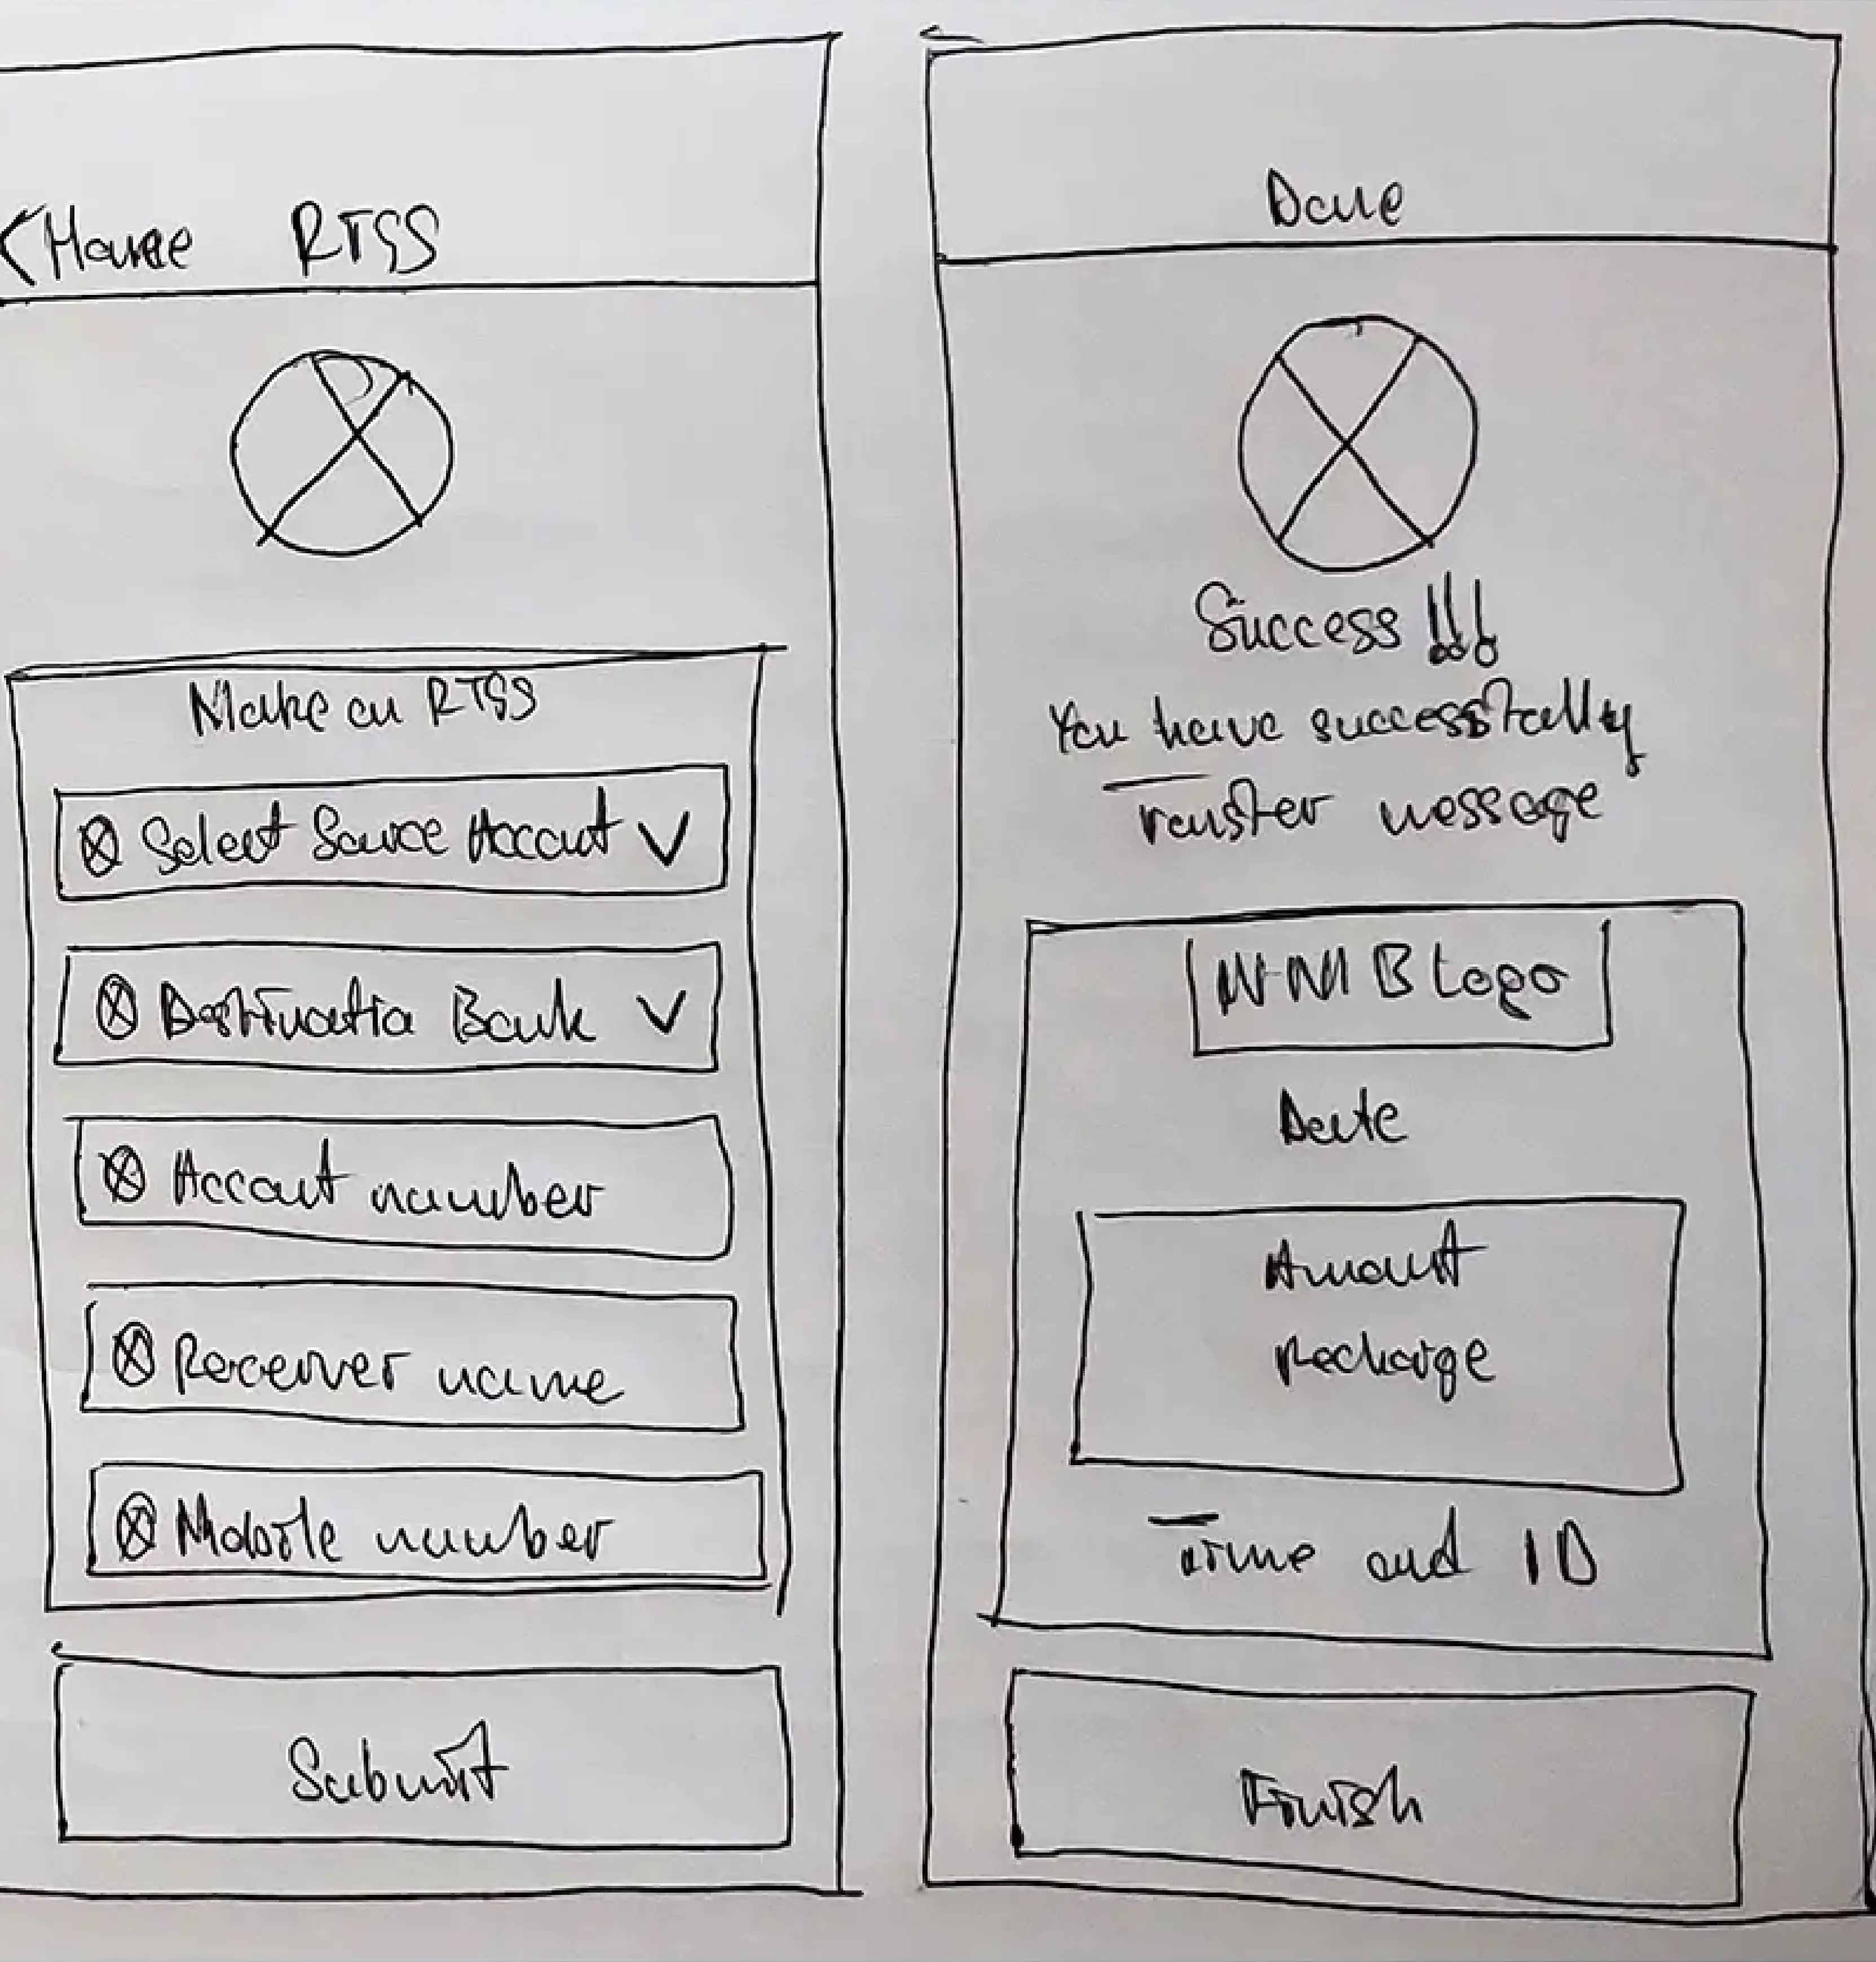 < Home RTGS
Make an RTGS
Select Source Account
Destination Bank
Account number
Receiver name
Mobile number
Submit
Done
Success !!!
You have successfully
Transfer message
Logo
Date
Amount
Recharge
Time and ID
Finish